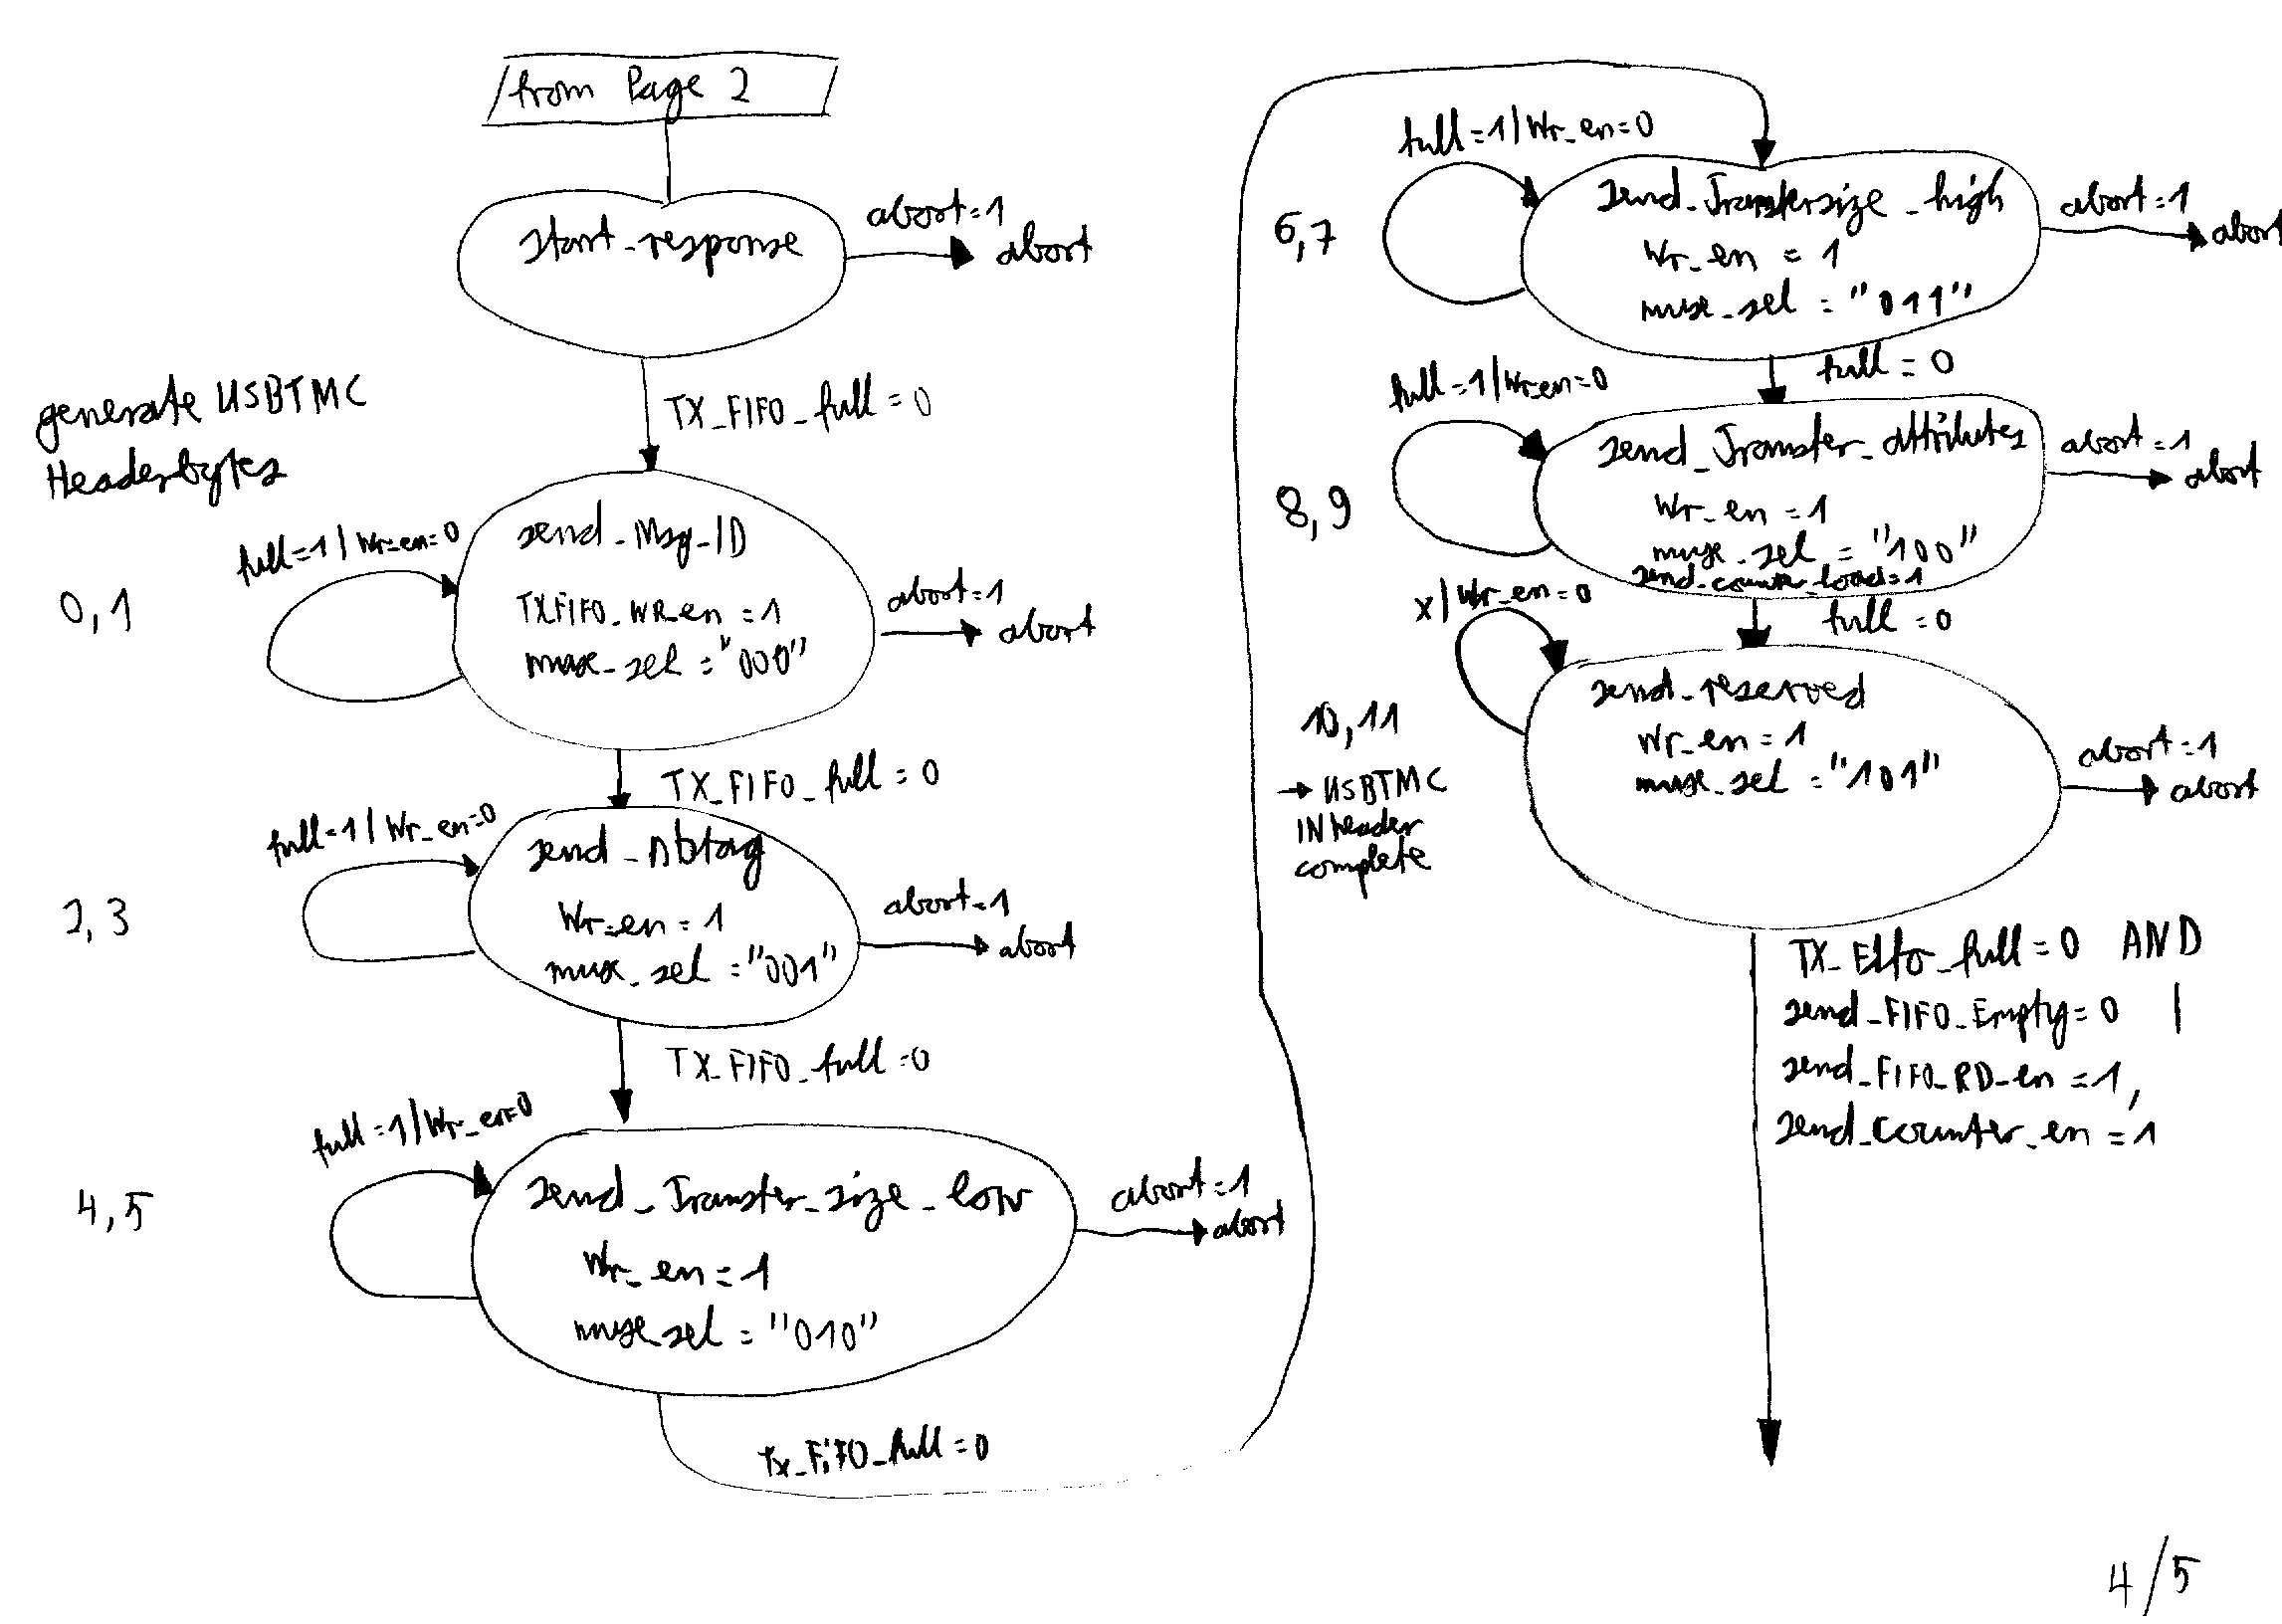 from Page 2
start_response
abort=1
abort
TX_FIFO_full = 0
generate USBTMC
Headerbytes
0,1
full=1/Wr_en=0
send_Msg_ID
TXFIFO_WR_en = 1
mux_sel = "000"
abort=1
abort
TX_FIFO_full = 0
2,3
full=1/Wr_en=0
send_nbtag
Wr_en = 1
mux_sel = "001"
abort=1
abort
TX_FIFO_full = 0
4,5
full=1/Wr_en=0
send_Transfer_size_low
Wr_en = 1
mux_sel = "010"
abort=1
abort
Tx_FIFO_full = 0
6,7
full=1/Wr_en=0
send_Transfersize_high
Wr_en = 1
mux_sel = "011"
abort=1
abort
full = 0
8,9
full=1/Wr_en=0
send_Transfer_attributes
Wr_en = 1
mux_sel = "100"
send_counter_load=1
abort=1
abort
full = 0
x/Wr_en=0
10,11
→ USBTMC
IN header
complete
send_reserved
Wr_en = 1
mux_sel = "101"
abort=1
abort
TX_FIFO_full = 0 AND
send_FIFO_Empty = 0 /
send_FIFO_RD_en = 1,
send_counter_en = 1
4/5